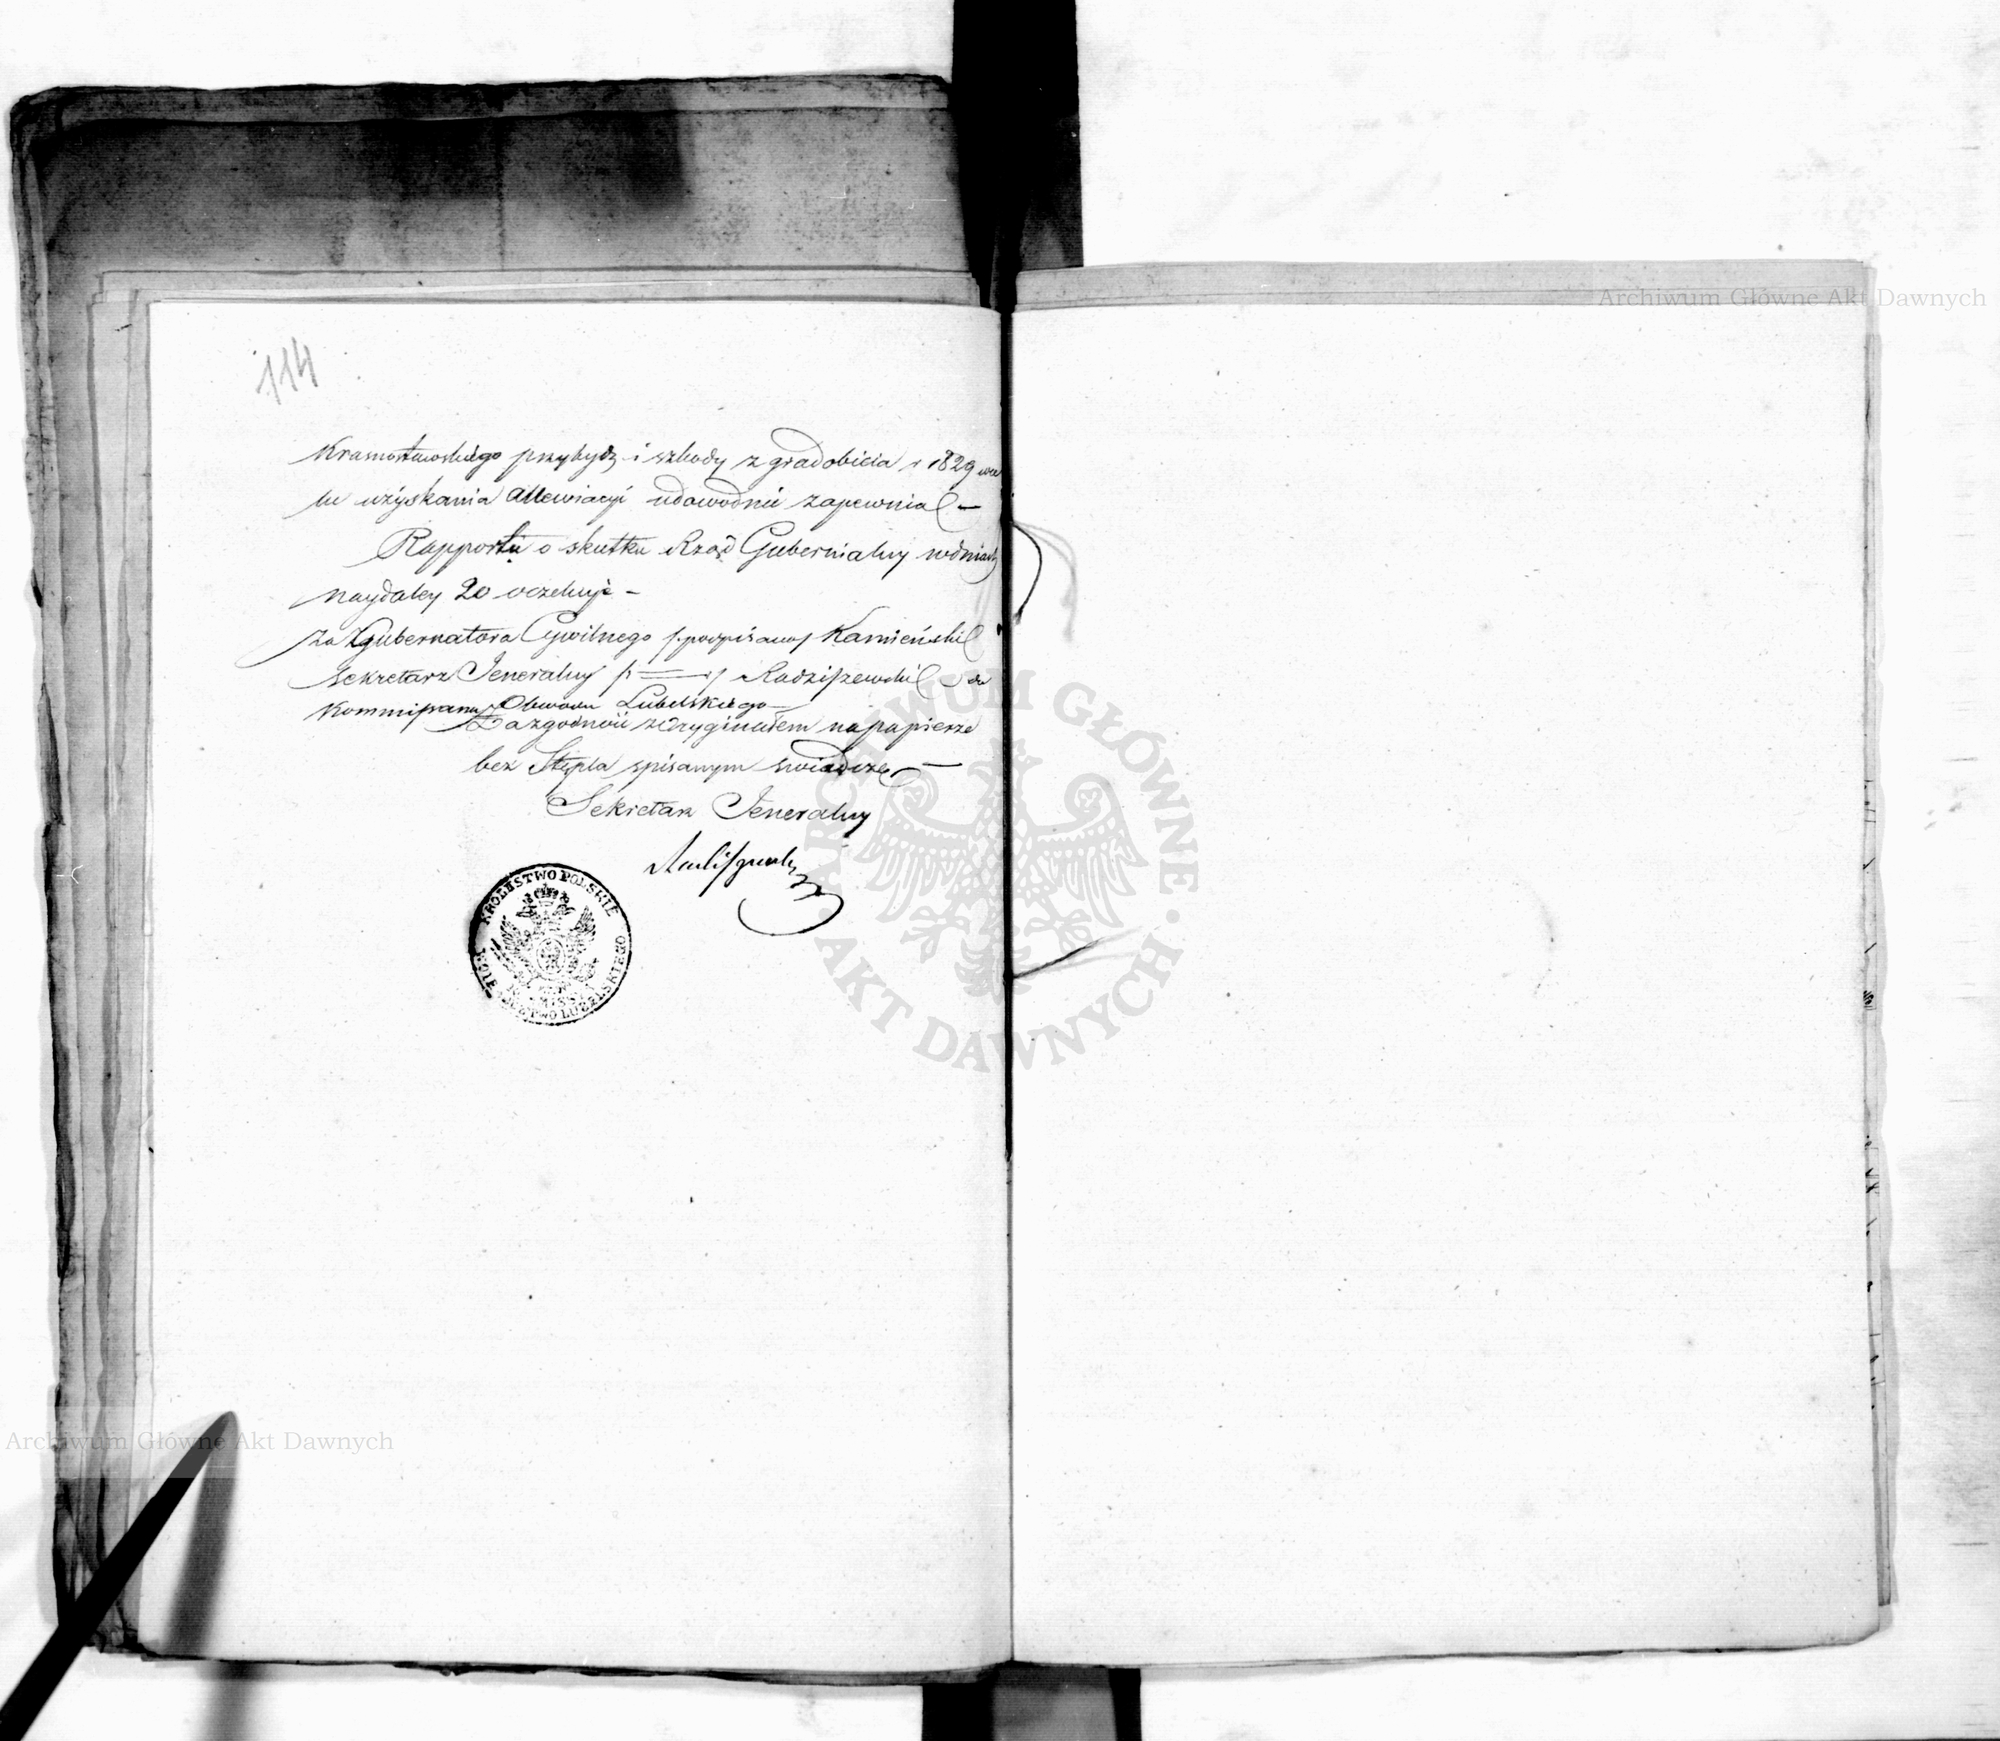 114
Krasnostawskiego przybydź i szkody z gradobicia r 1829 we
lu uzyskania allewiacyi udowodnić zapewnia —
Rapportu o skutku Rząd Gubernialny wdniach
naydaley 20 oczekuje —
za Gubernatora Cywilnego /:podpisano/ Kamieński
Sekretarz Jeneralny /: = :/ Radziszewski do
Kommissarza Obwodu Lubelskiego —
Za zgodność z Oryginałem na papierze
bez Stępla spisanym świadczę —
Sekretarz Jeneralny
Radziszewski
KROLESTWO POLSKIE
Archiwum Główne Akt Dawnych
ARCHIWUM GŁÓWNE · AKT DAWNYCH ·
Archiwum Główne Akt Dawnych